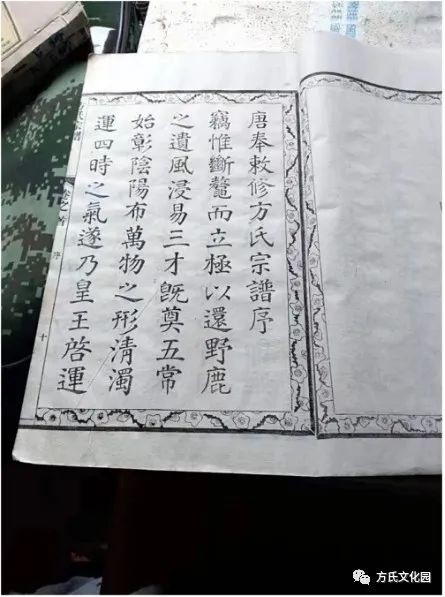 唐奉敕修方氏宗譜序
竊惟斷鼇而立極以還野鹿
之遺風浸易三才旣奠五常
始彰陰陽布萬物之形淸濁
運四時之氣遂乃皇王啓運
序
十
方氏文化园